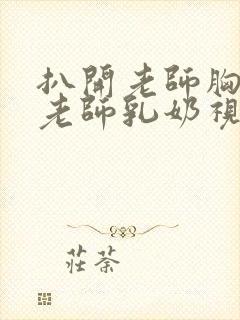 扒開老師胸
老師乳奶視
莊荼